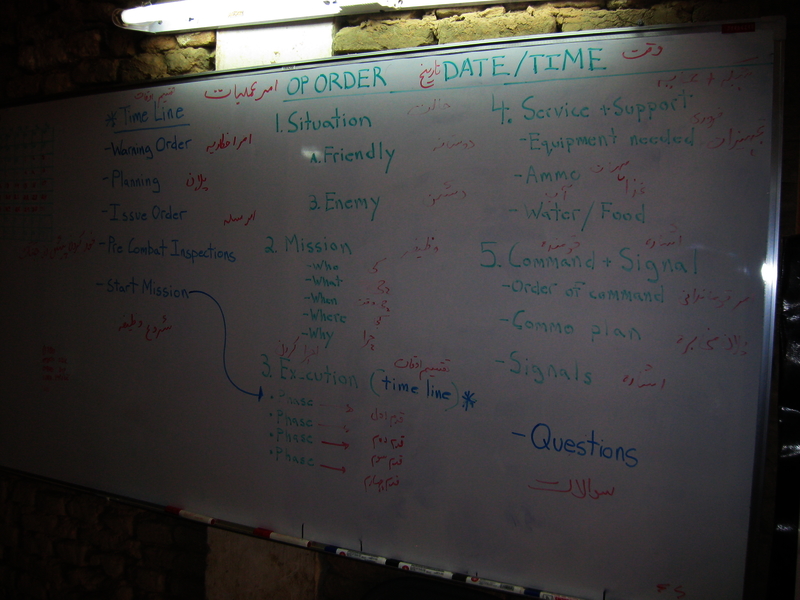 امر عملیات OP ORDER تاریخ DATE/TIME وقت
تقسیم اوقات
* Time Line
- Warning Order امر اخطاریه
- Planning پلان
- Issue Order
- Pre Combat Inspections
- Start Mission
شروع وظیفه
1. Situation حالت
A. Friendly دوستانه
3. Enemy دشمن
2. Mission وظیفه
- Who کی
- What چی
- When چی وقت
- Where
- Why چرا
تقسیم اوقات
3. Execution (time line) *
• Phase قدم اول
• Phase قدم دوم
• Phase قدم سوم
• Phase قدم چهارم
4. Service + Support
- Equipment needed تجهیزات
- Ammo مهمات
- Water/Food
5. Command + Signal
- Order of command
- Commo plan پلان مخابره
- Signals اشاره
- Questions
سوالات